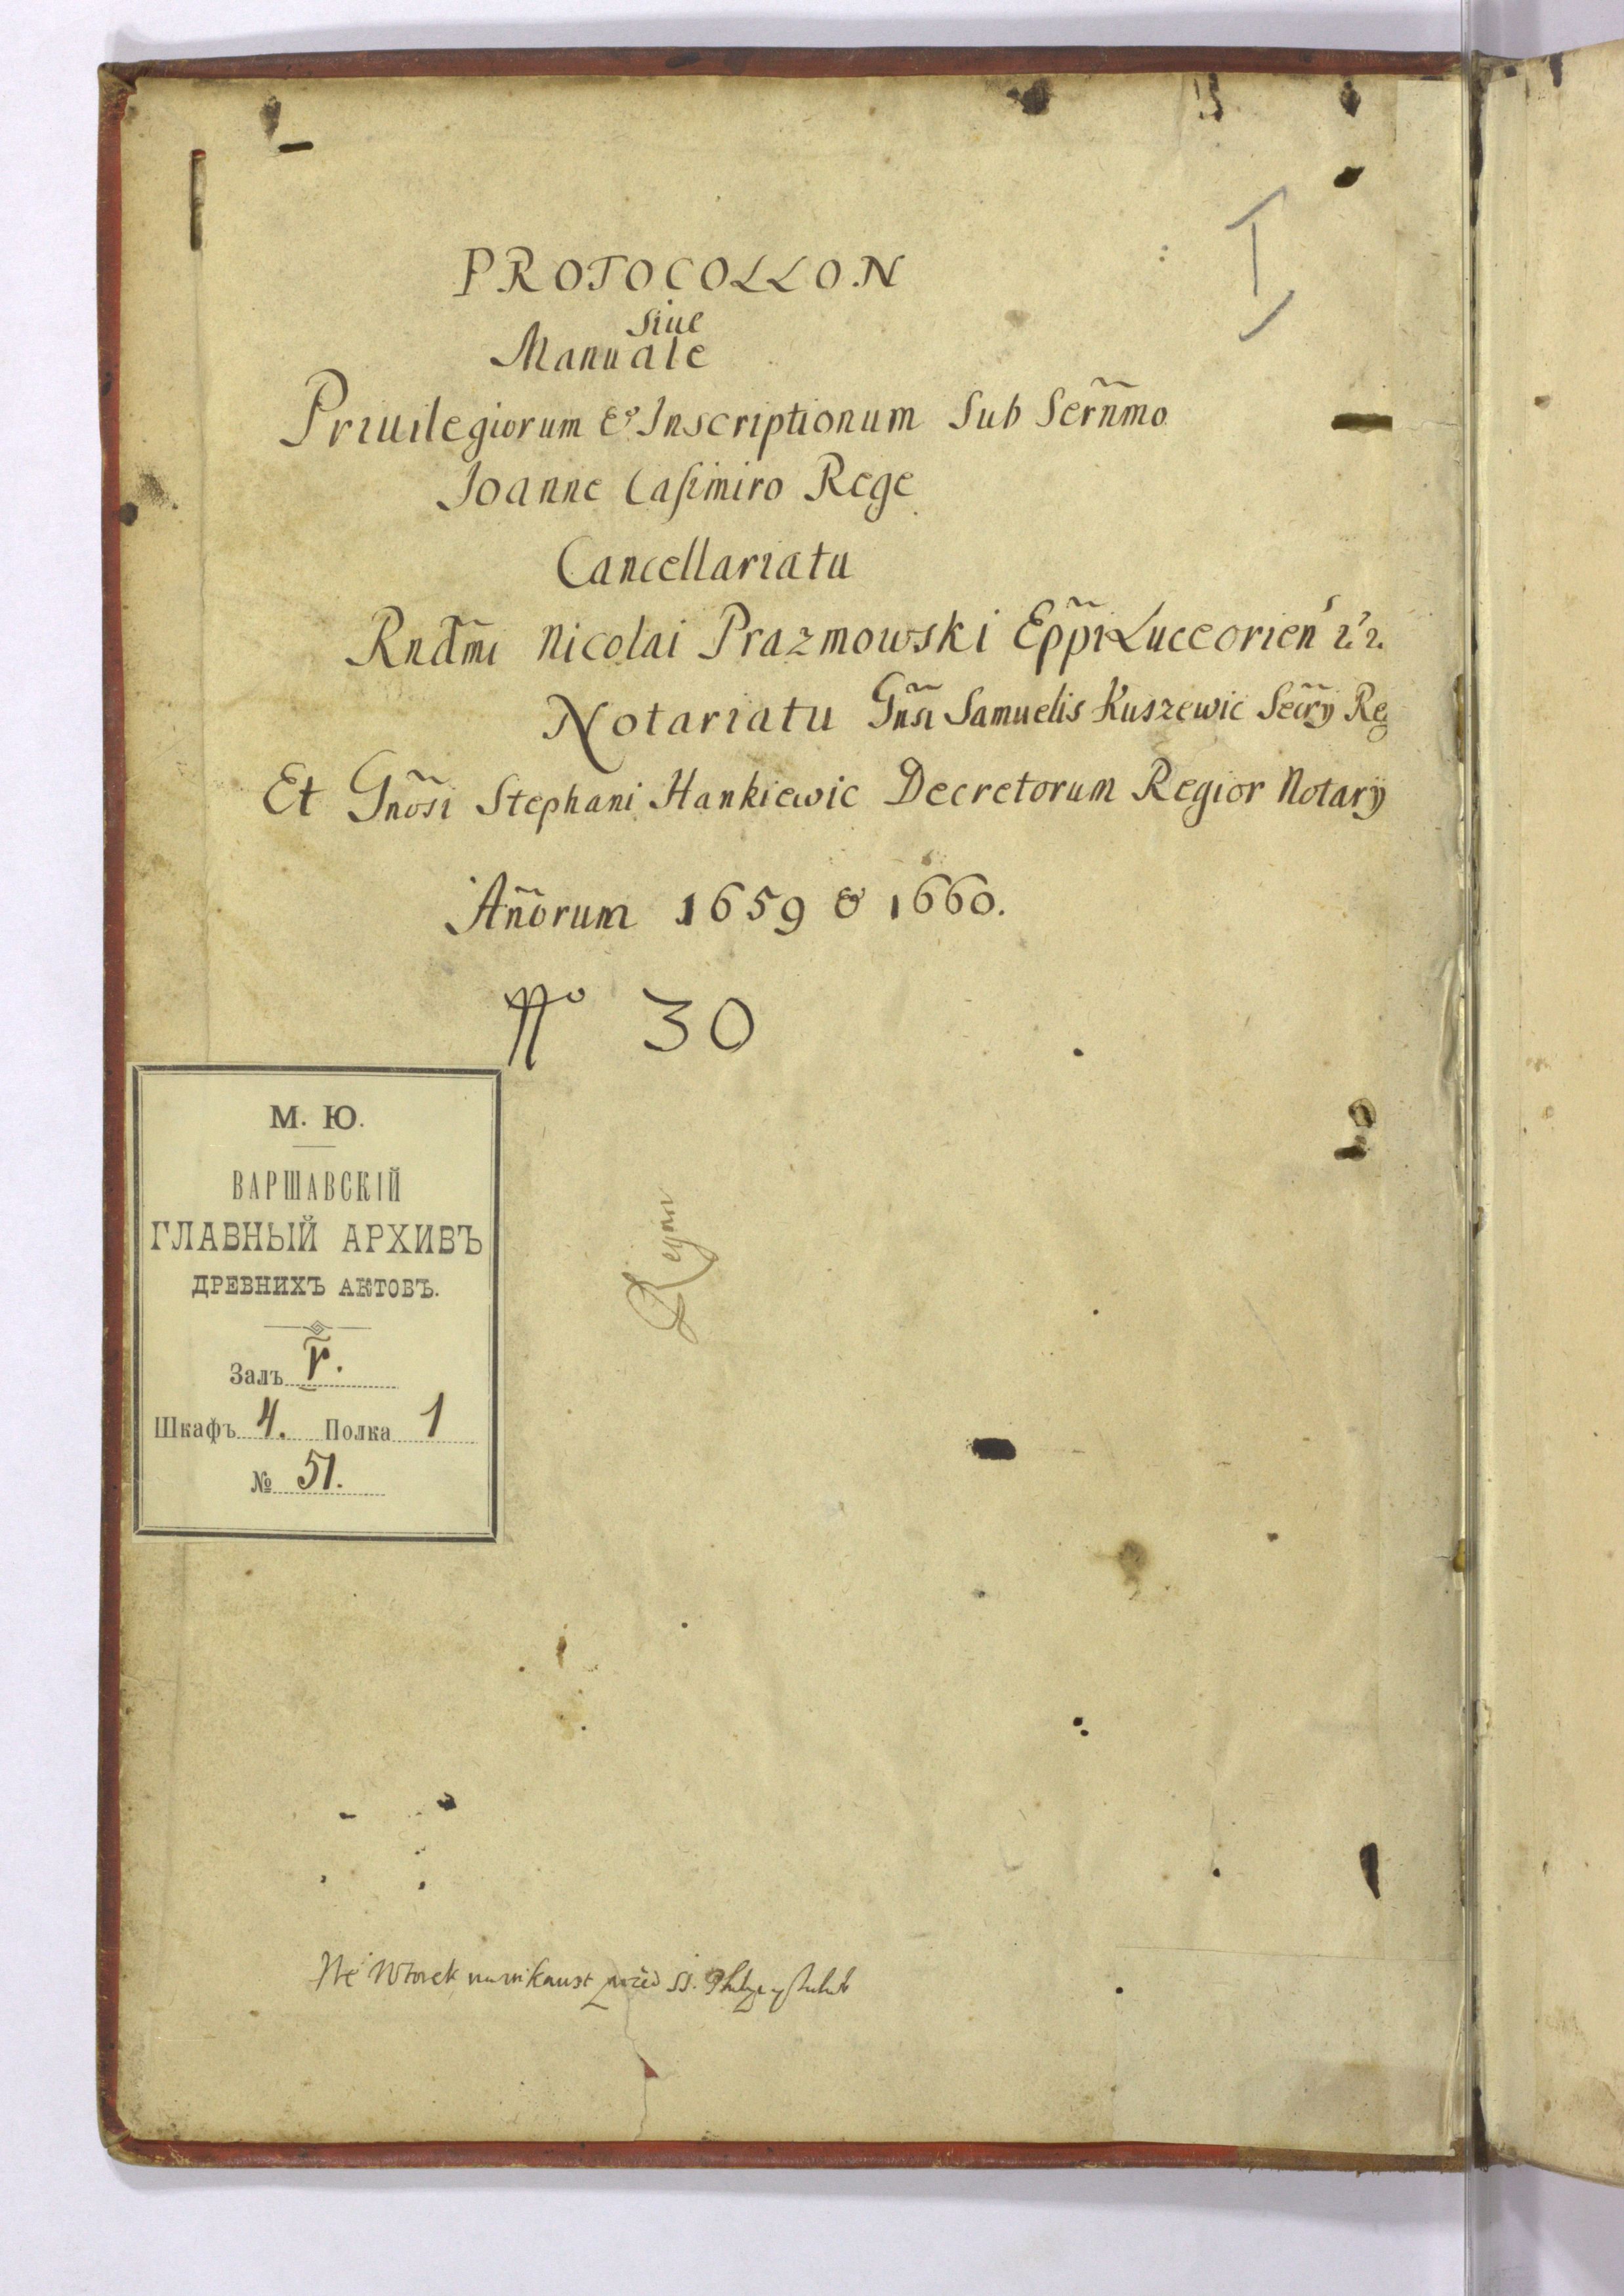 PROTOCOLLON
siue
Manuale
Priuilegiorum & Inscriptionum Sub Serñmo
Joanne Casimiro Rege
Cancellariatu
Rndm̃i Nicolai Prazmowski Epp̃i Luceorien
Notariatu Gñsi Samuelis Kuszewic Secr̃ij Reg
Et Gnõsi Stephani Hankiewic Decretorum Regior Notarij
Añorum 1659 & 1660.
No 30
М. Ю.
ВАРШАВСКІЙ
ГЛАВНЫЙ АРХИВЪ
ДРЕВНИХЪ АКТОВЪ.
Залъ V.
Шкафъ 4. Полка 1
№ 51.
We Wtorek SS.